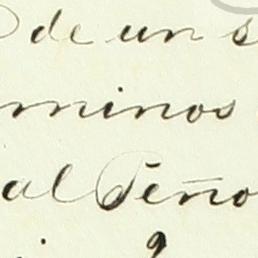 de un s
minos
al Seño